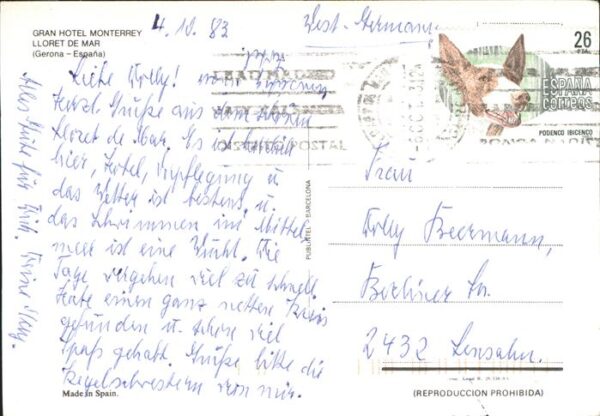 GRAN HOTEL MONTERREY
LLORET DE MAR
(Gerona - España)
4.10.83
West-Germany
26
PTA.
ESPAÑA
correos
PODENCO IBICENCO
DISTRITO POSTAL
Liebe Elly!
Herzl. Grüße aus dem schönen
Lloret de Mar. Es ist herrlich
hier, Hotel, Verpflegung u
das Wetter ist bestens, u.
das Schwimmen im Mittel
meer ist eine Wucht. Die
Tage vergehen viel zu schnell.
Habe einen ganz netten Kreis
gefunden u. schon viel
Spaß gehabt. Grüße bitte die
Kegelschwestern von mir.
Alles Gute für Dich. Deine
Frau
Elly Beermann,
Berliner Str.
2432 Lensahn.
PUBLINTER - BARCELONA
Made in Spain.
(REPRODUCCION PROHIBIDA)